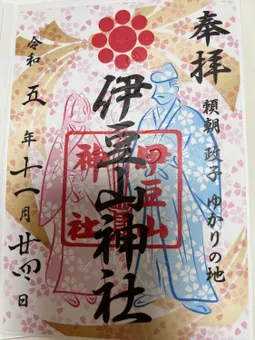 奉拝
頼朝 政子 ゆかりの地
伊豆山神社
伊豆山
神社
令和五年十一月廿四日